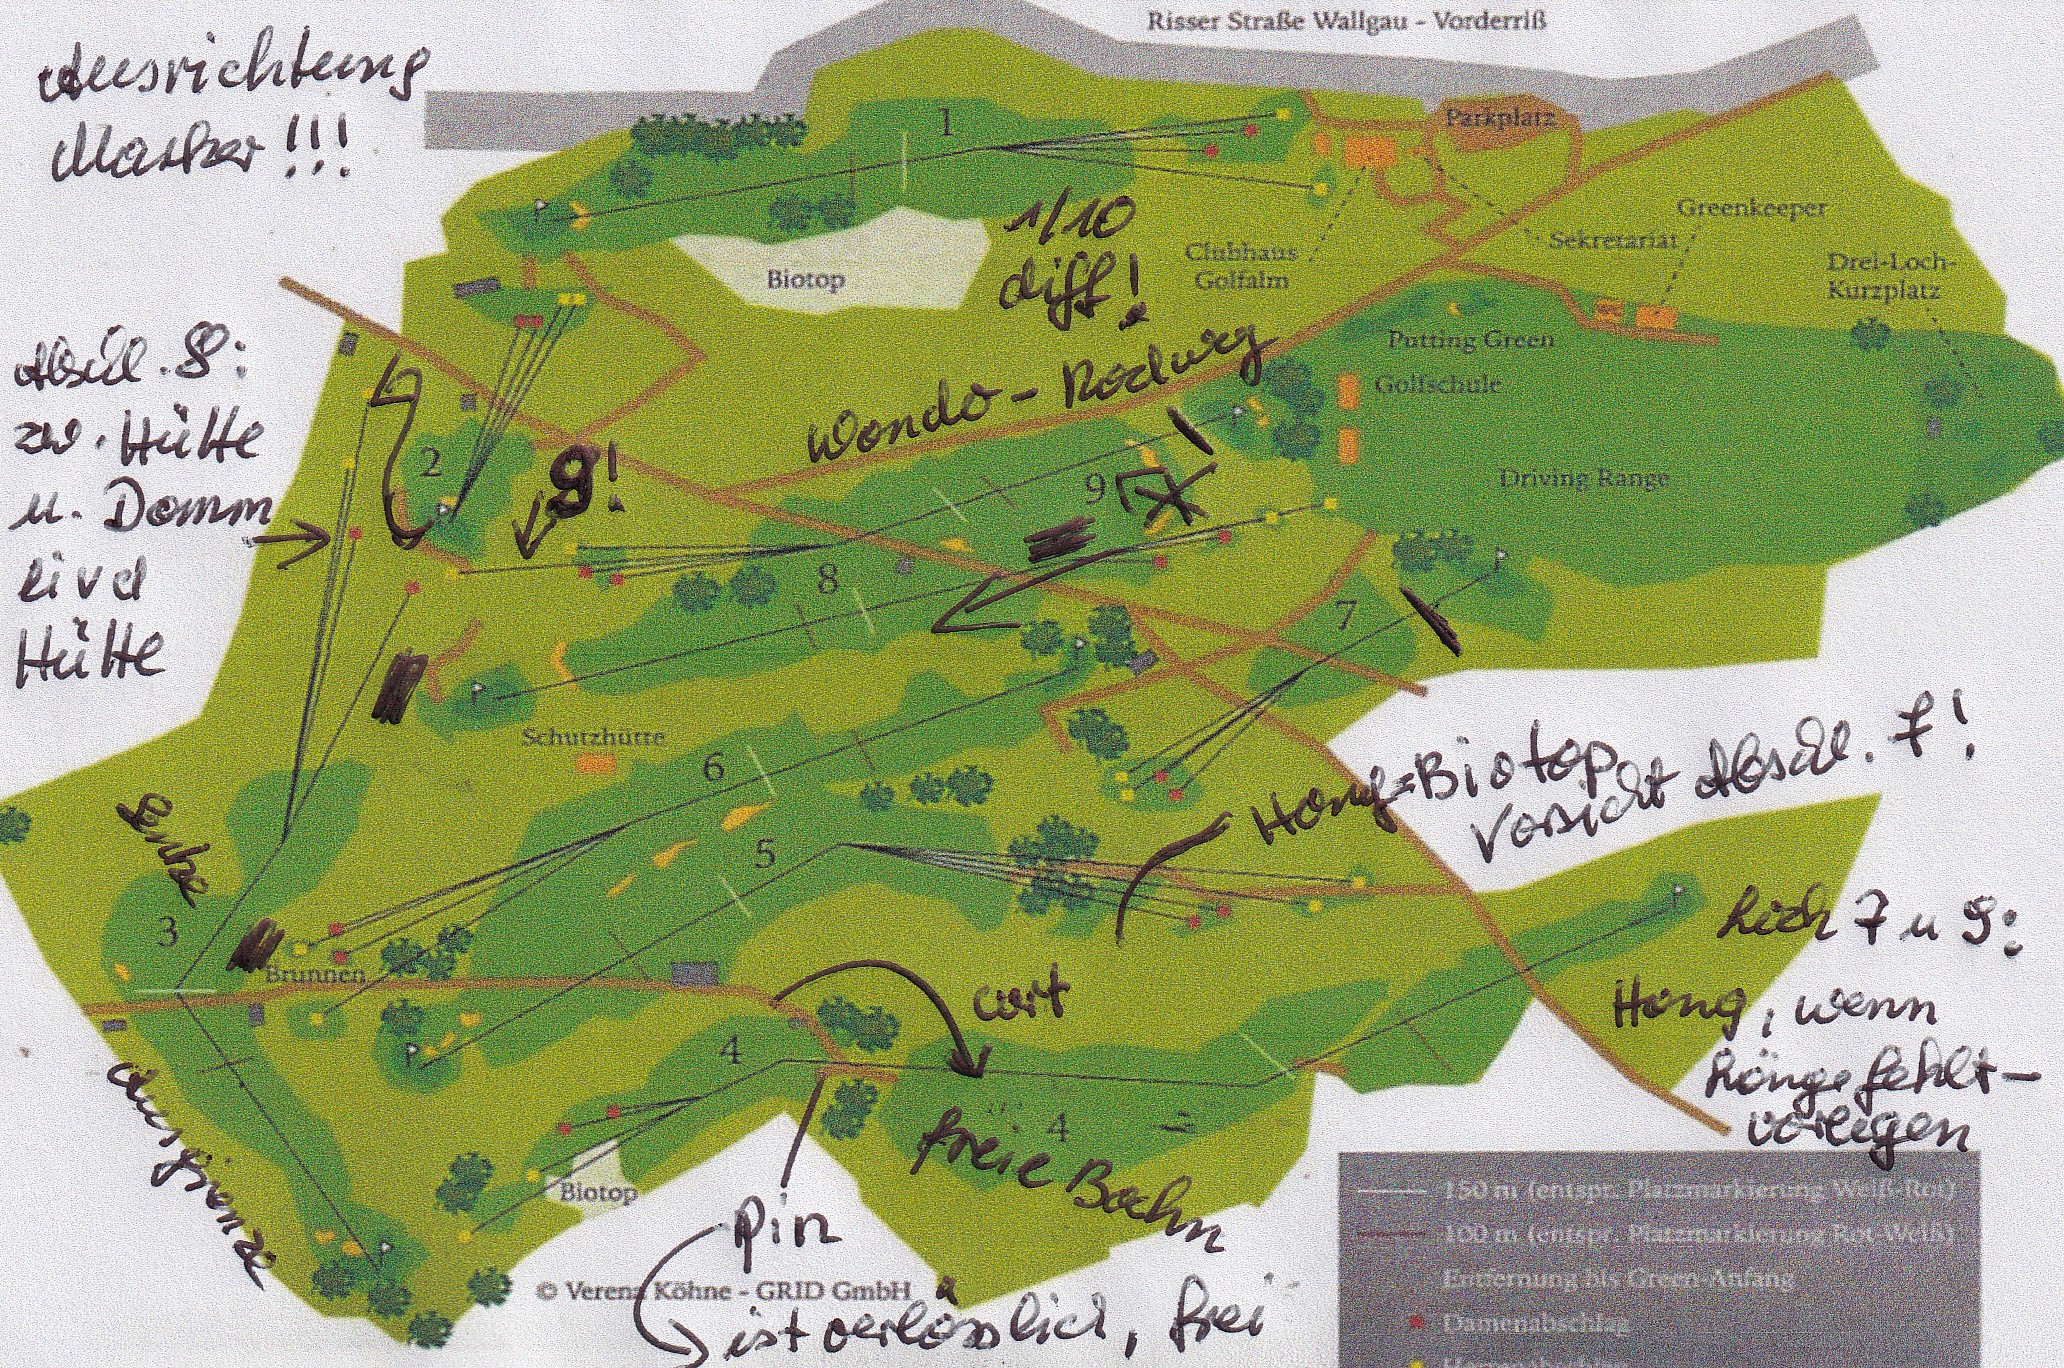 Risser Straße Wallgau - Vorderriß
Ausrichtung
Marker!!!
1
Parkplatz
1/10
diff!
Greenkeeper
Sekretariat
Clubhaus
Golfalm
Biotop
Drei-Loch-
Kurzplatz
Putting Green
Golfschule
Abschl. 8:
zw. Hütte
u. Damm
Hütte
Wander-Radweg
2
9!
9
Driving Range
8
7
Schutzhütte
6
5
Hang=Biotop
Vorsicht Abschl. 7!
Senke
3
Brunnen
Rich 7 u 9:
Hang, wenn
Länge fehlt-
vorlegen
cart
4
4
freie Bahn
Ausgrenze
Biotop
Pin
ist verlässlich, frei
© Verena Köhne - GRID GmbH
150 m (entspr. Platzmarkierung Weiß-Rot)
100 m (entspr. Platzmarkierung Rot-Weiß)
Entfernung bis Green-Anfang
Damenabschlag
Herrenabschlag